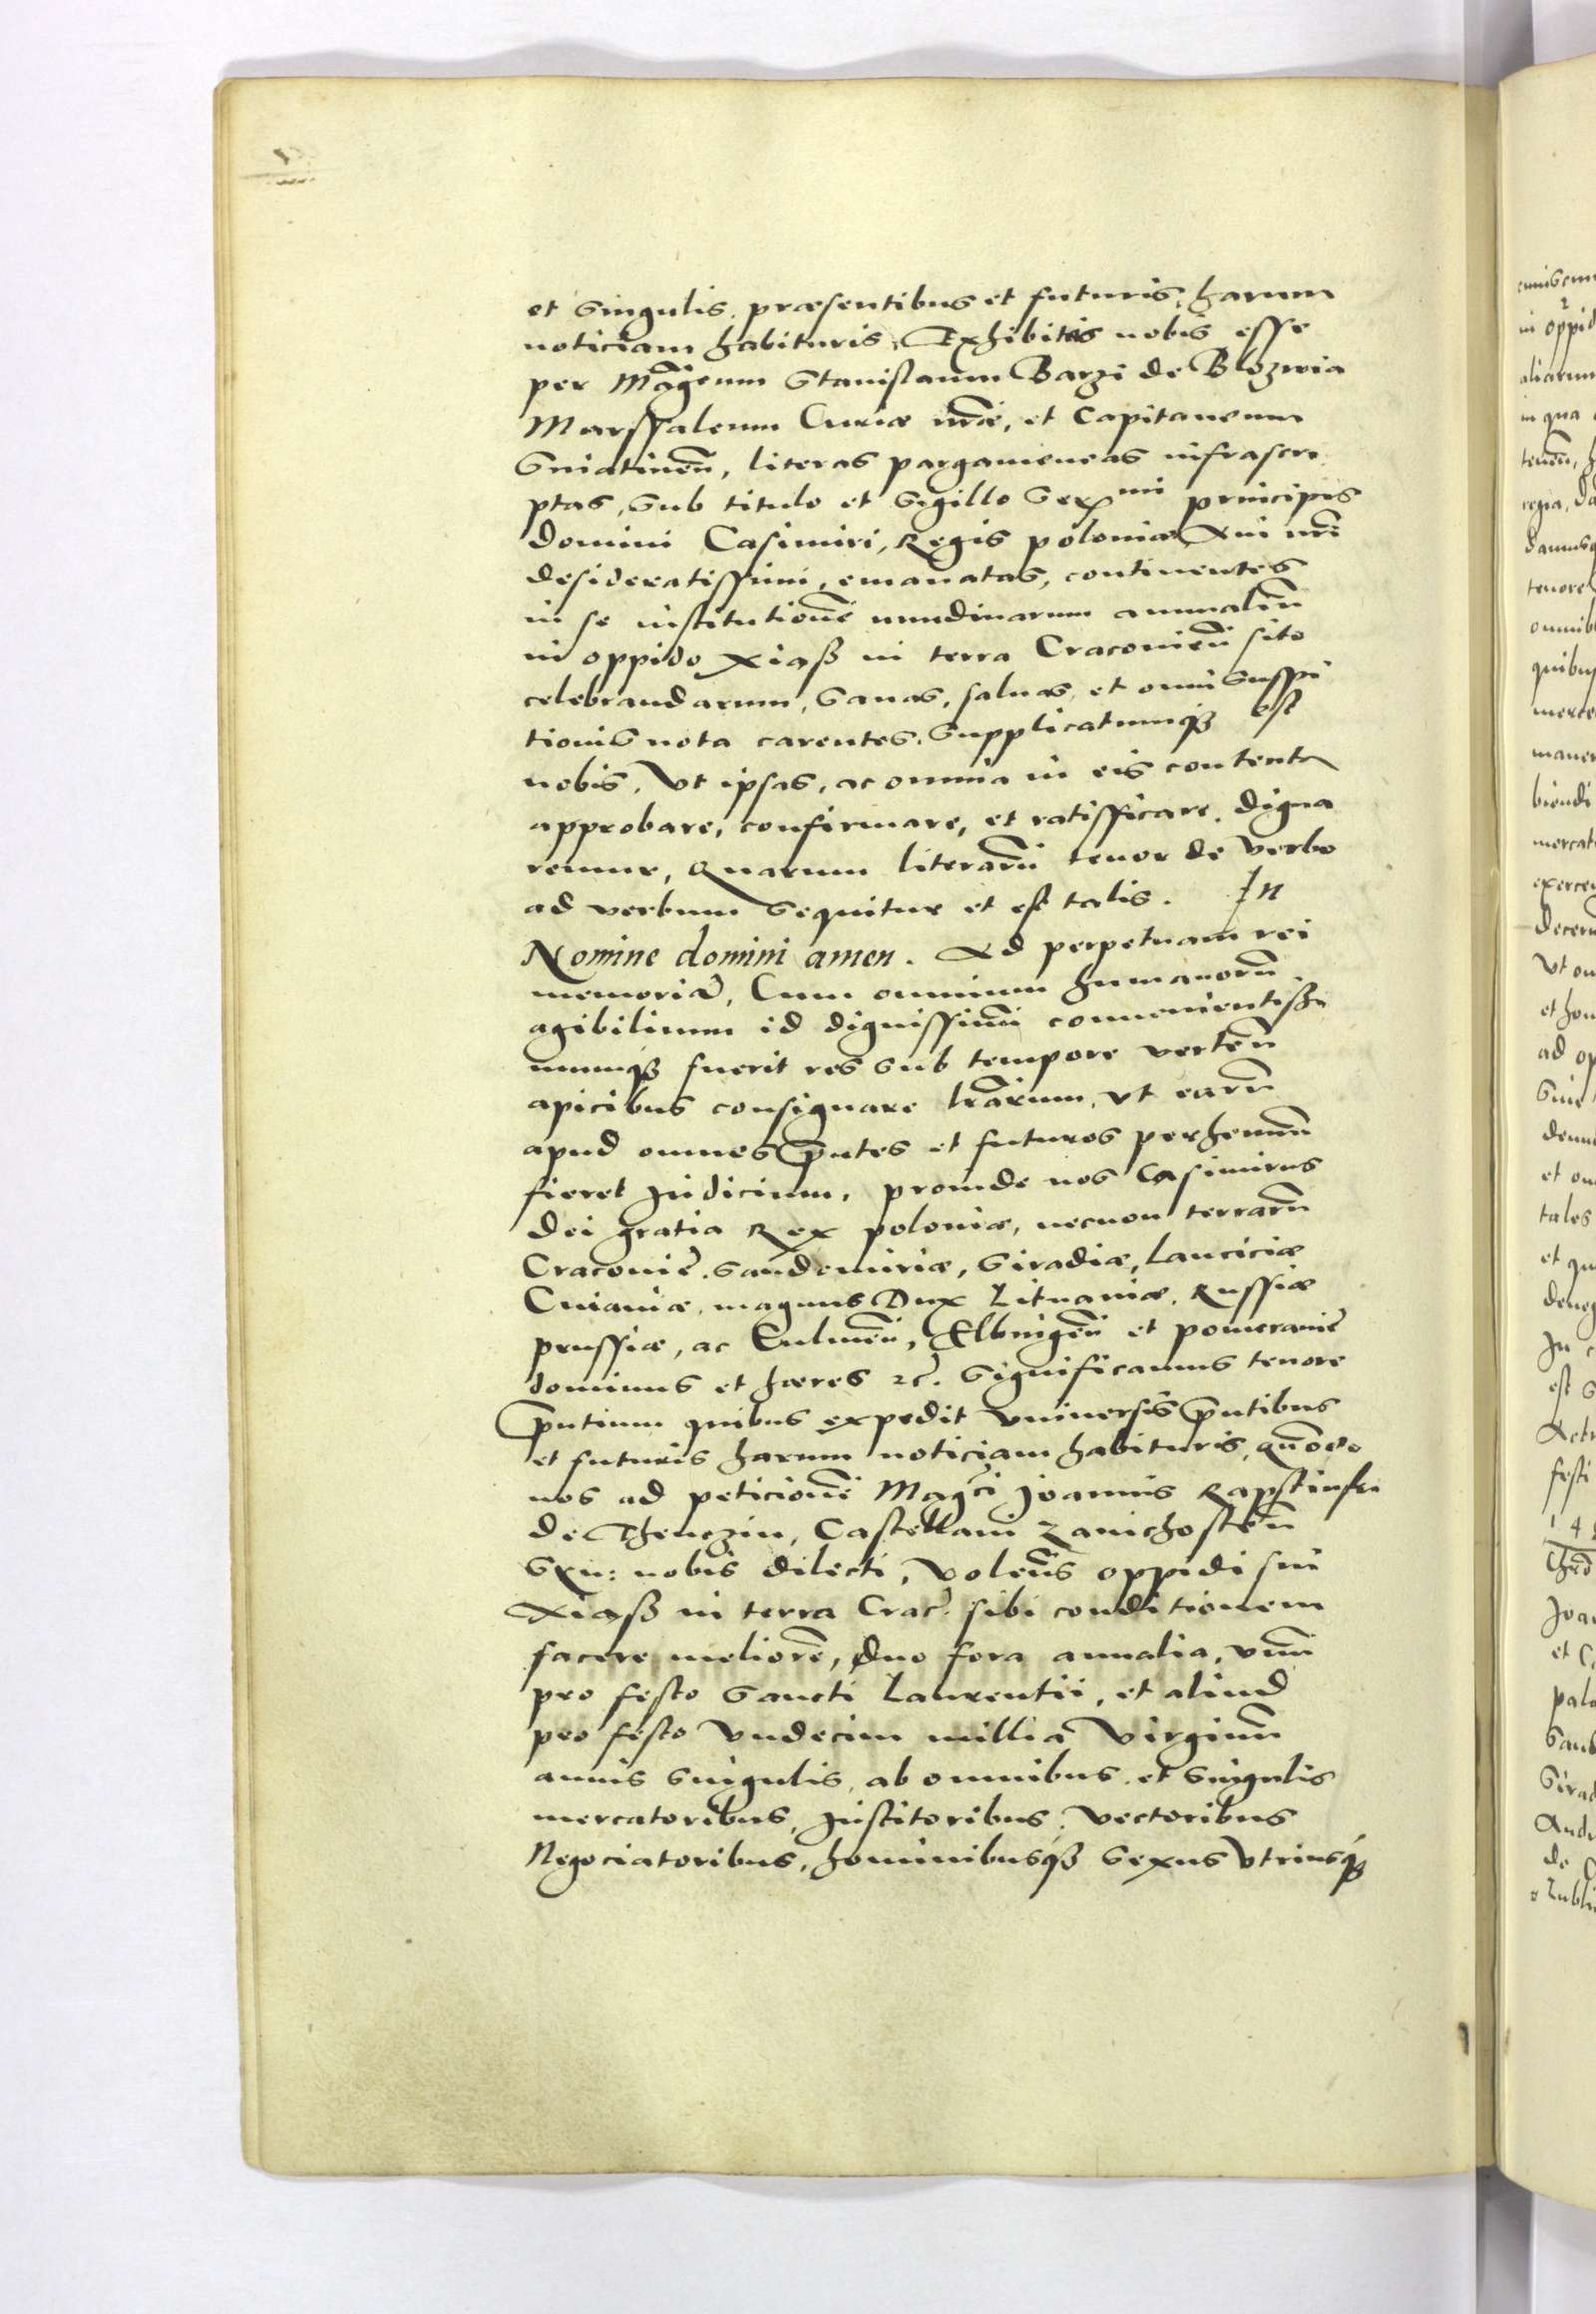 et singulis, præsentibus et futuris, harum
noticiam habituris, Exhibitas nobis esse
per Mãgcum Stanislaum Barzi de Blozwia
Marssalcum Curiæ nr̃æ, et Capitaneum
Sniatinen̄, literas pargameneas infrascri
ptas, sub titulo et sigillo Serᵐⁱ principis
domini Casimiri, Regis poloniæ Aui nr̃i
desideratissimi, emanatas, continentes
in se institutionē nundinarum annualiū
in oppido Xiaß in terra Cracovien̄ sito
celebrandarum, Sanas, saluas, et omni suspi
tionis nota carentes. Supplicatumqꝫ est
nobis, Vt ipsas, ac omnia in eis contenta
approbare, confirmare, et ratifficare, digna
remur, Quarum literarū tenor de verbo
ad verbum sequitur et est talis. In
Nomine domini amen. Ad perpetuam rei
memoriā, Cum omnium humanorū
agibilium id dignissimū conuenientissi
mumqꝫ fuerit res sub tempore verten̄
apicibus consignare lr̃arum, vt earū
apud omnes p̄ntes et futuros perhennū
fieret Judicium, proinde nos Casimirus
Dei gratia Rex poloniæ, necnon terrarū
Cracoviē. Sandomiriæ, Siradiæ, Lanciciæ
Cuiauiæ, magnus Dux Lituaniæ, Russiæ
prussiæ, ac Culmen̄, Elbingen̄ et pomeraniē
dominus et hæres ꝛc̃. Significamus tenore
p̄ntium quibus expedit vniuersis p̄ntibus
et futuris harum noticiam habituris, quōdo
nos ad peticionē Mag̃ci Joannis Rapstinski
de Thenczin, Castellani Zanichosten̄
Syn: nobis dilecti, volen̄s oppidi sui
Xiaß in terra Crac̃. sibi conditionem
facere meliorē, Duo fora annalia, vnū
pro festo Sancti Laurentii, et aliud
pro festo Vndecim milliā Virginū
annis singulis, ab omnibus et singulis
mercatoribus, Institoribus, Vectoribus
Negociatoribus, hominibusqꝫ sexus Vtriusqꝫ